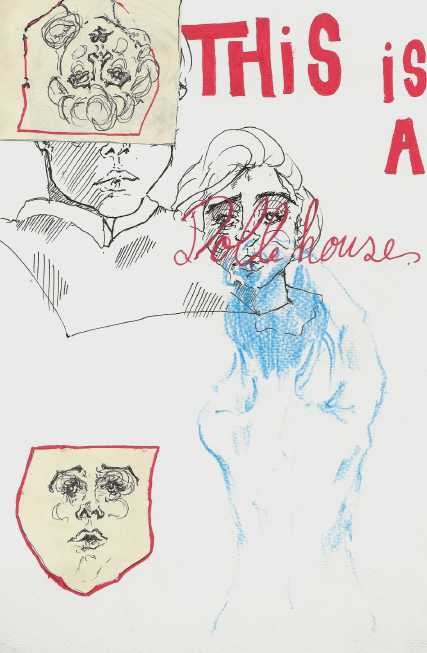 THiS iS
A
Dollhouse.